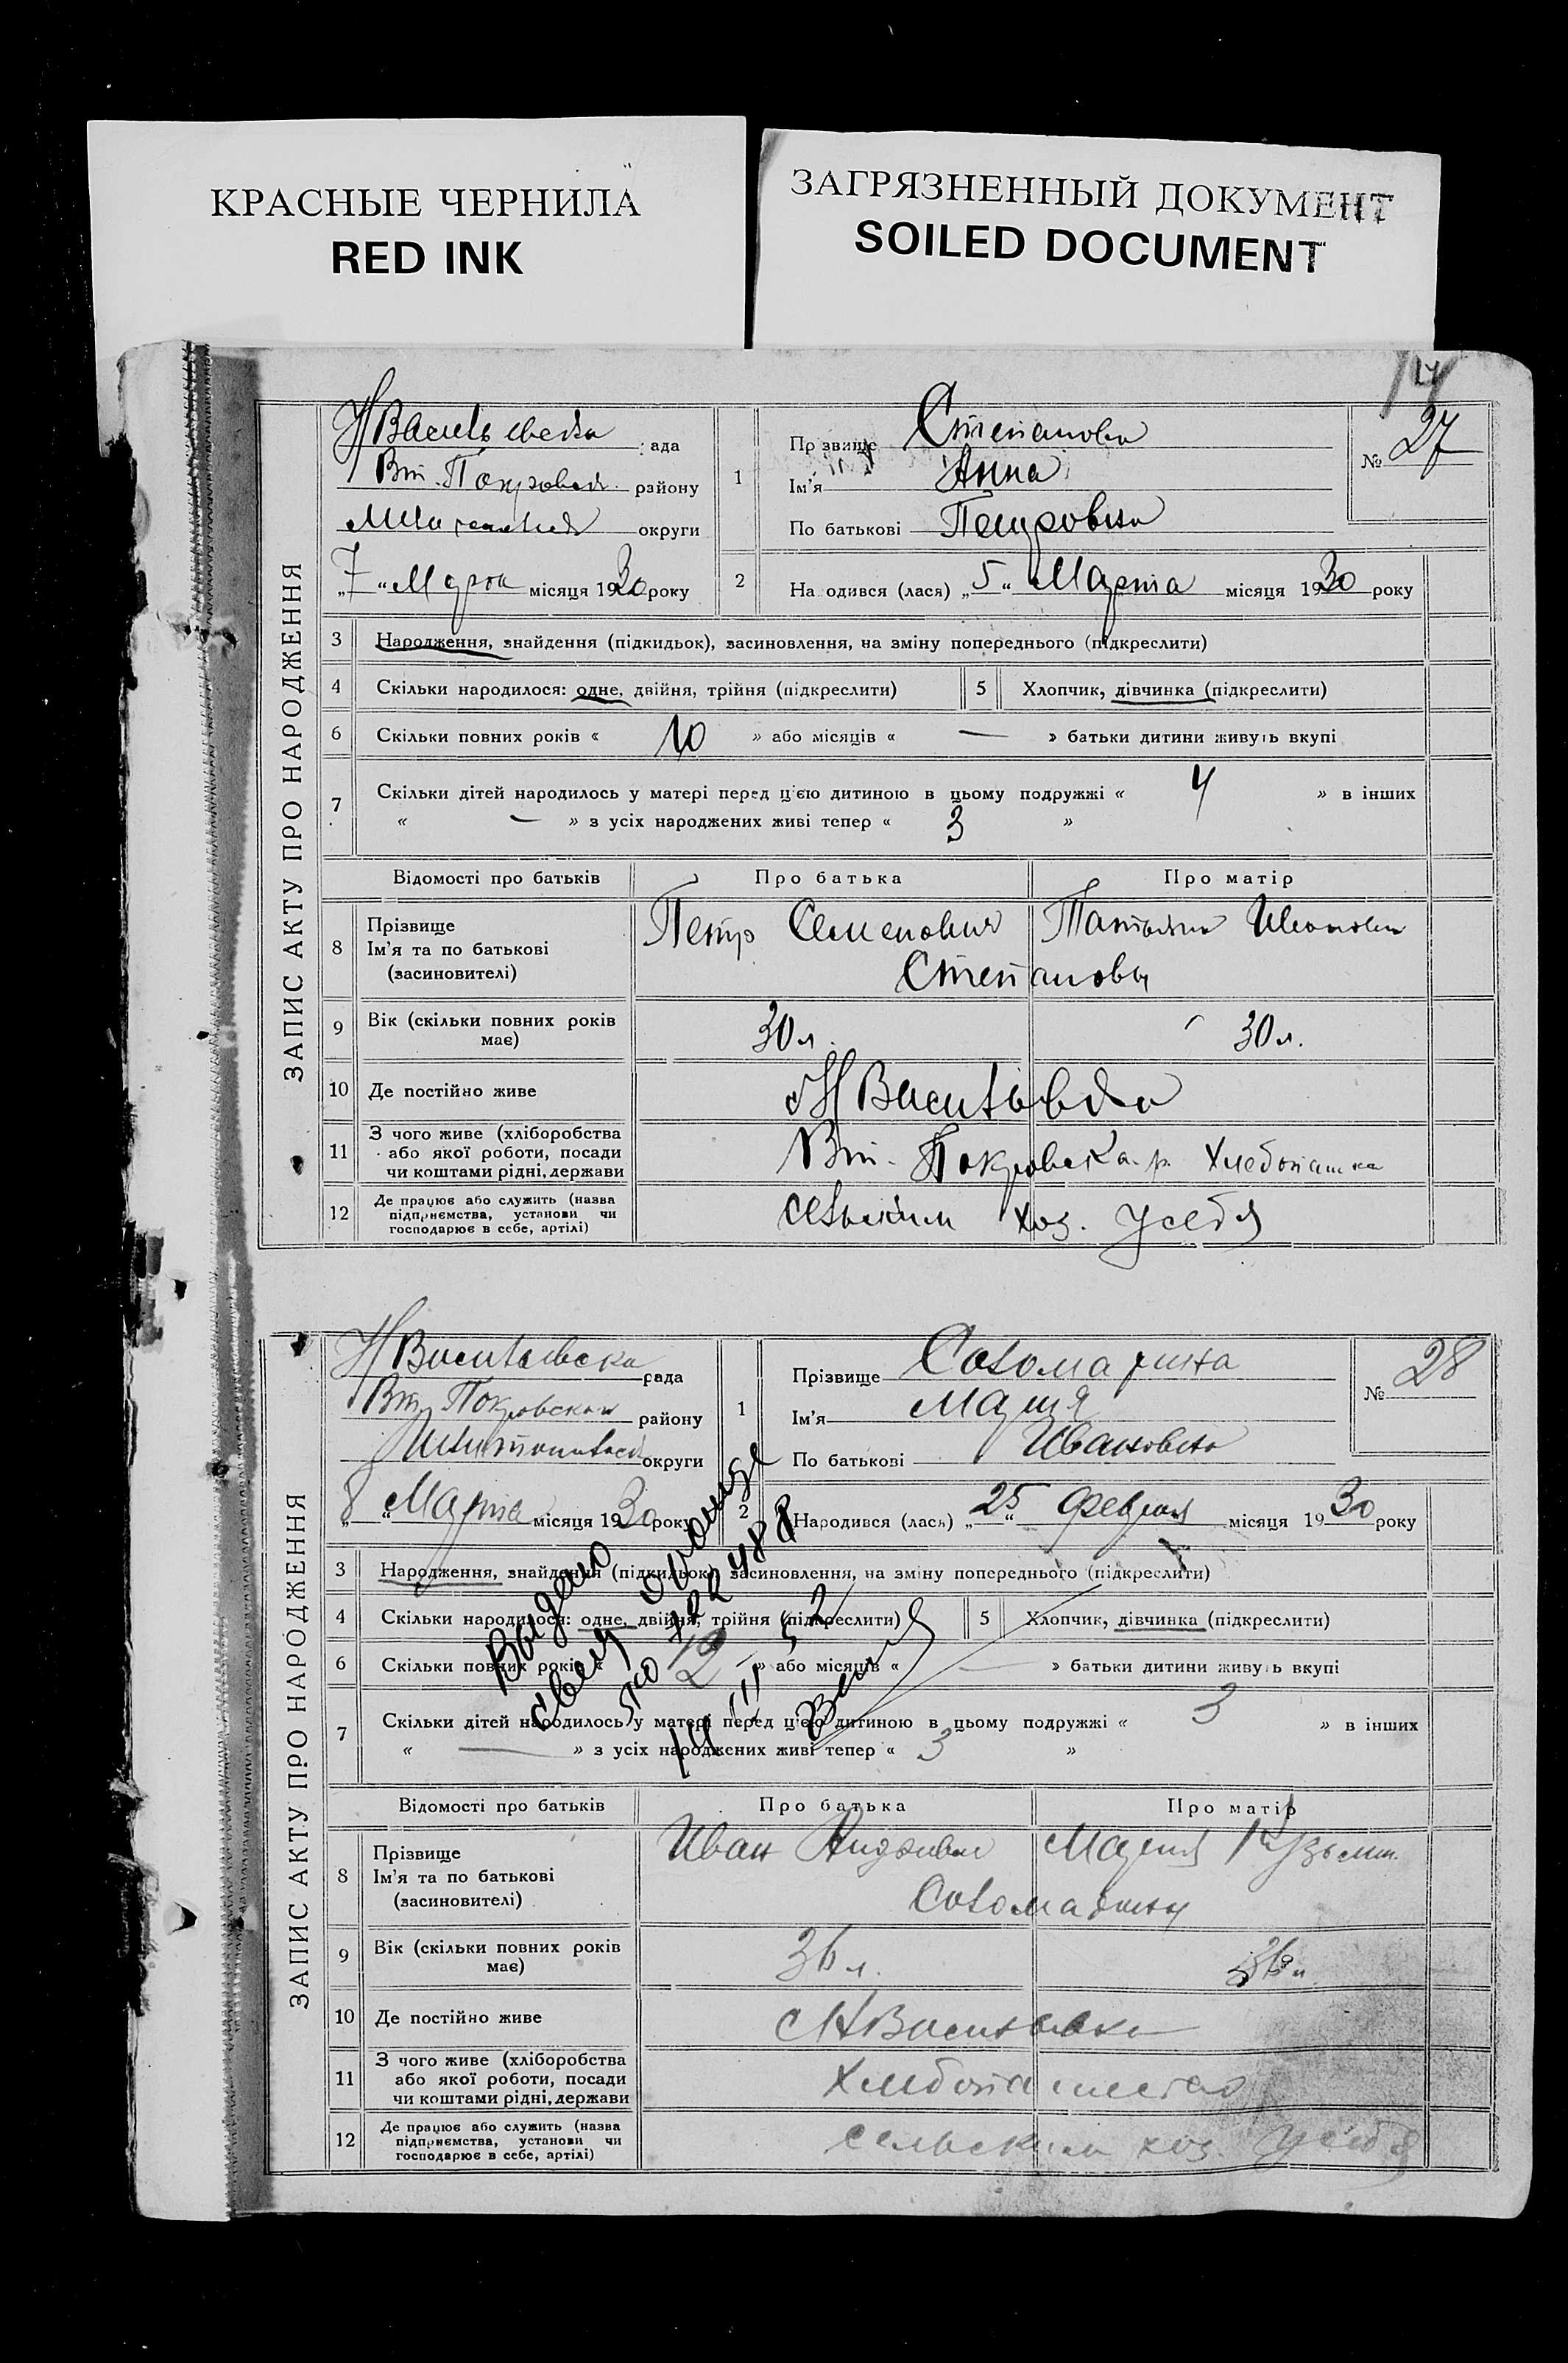 КРАСНЫЕ ЧЕРНИЛА
RED INK
ЗАГРЯЗНЕННЫЙ ДОКУМЕНТ
SOILED DOCUMENT
ЗАПИС АКТУ ПРО НАРОДЖЕННЯ
рада
Вт. Покровская району
округи
„7“ Марта місяця 1930 року
1
Прізвище Степанова
Ім'я Анна
По батькові Петровна
№ 27
2
Народився (лася) „5“ Марта місяця 1930 року
3 Народження, знайдення (підкидьок), засиновлення, на зміну попереднього (підкреслити)
4 Скільки народилося: одне, двійня, трійня (підкреслити) 5 Хлопчик, дівчинка (підкреслити)
6 Скільки повних років « 10 » або місяців « — » батьки дитини живуть вкупі
7 Скільки дітей народилось у матері перед ц'єю дитиною в цьому подружжі « 4 » в інших
« — » з усіх народжених живі тепер « 3 »
Відомості про батьків Про батька Про матір
8 Прізвище
Ім'я та по батькові
(засиновителі)
Петр Семенович Татьяна Ивановна
Степановы
9 Вік (скільки повних років має) 30 л. 30 л.
10 Де постійно живе с Н Васильевка
11 З чого живе (хліборобства або якої роботи, посади чи коштами рідні, держави Вт. Покровска. р. Хлебопашка
12 Де працює або служить (назва підприємства, установи чи господарює в себе, артілі) сельским хоз. у себя
ЗАПИС АКТУ ПРО НАРОДЖЕННЯ
Н Васильевска рада
Вт. Покровская району
округи
„8“ Марта місяця 1930 року
1
Прізвище Соломахина
Ім'я Мария
По батькові Ивановна
№ 28
2
Народився (лася) „25“ Февраля місяця 1930 року
3 Народження, знайдення (підкидьок), засиновлення, на зміну попереднього (підкреслити)
4 Скільки народилося: одне, двійня, трійня (підкреслити) 5 Хлопчик, дівчинка (підкреслити)
6 Скільки повних років « 12 » або місяців « — » батьки дитини живуть вкупі
7 Скільки дітей народилось у матері перед ц'єю дитиною в цьому подружжі « 3 » в інших
« — » з усіх народжених живі тепер « 3 »
Выдано
свид
Відомості про батьків Про батька Про матір
8 Прізвище
Ім'я та по батькові
(засиновителі)
Иван Мария Кузьмин.
Соломахины
9 Вік (скільки повних років має) 36 л. 36 л
10 Де постійно живе с Н Васильевка
11 З чого живе (хліборобства або якої роботи, посади чи коштами рідні, держави Хлебопашество
12 Де працює або служить (назва підприємства, установи чи господарює в себе, артілі) сельским хоз у себя